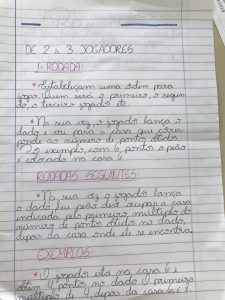 DE 2 a 3 JOGADORES
1ª RODADA:
* Estabeleçam uma ordem para
jogar. Quem será o primeiro, o segun
do, o terceiro jogador etc.
* Na sua vez, o jogador lança o
dado e vai para a casa que corres
ponde ao número de pontos obtido.
Por exemplo, com 6 pontos o peão
é colocado na casa 6
RODADAS SEGUINTES:
* Na sua vez o jogador lança
o dado. Seu peão deve ocupar a casa
indicada pelo primeiro múltiplo do
número de pontos obtido no dado,
depois da casa onde ele se encontra.
EXEMPLOS:
* O jogador está na casa 6 e
obtém 4 pontos no dado. O primeiro
múltiplo de 4, depois da casa 6, é 8